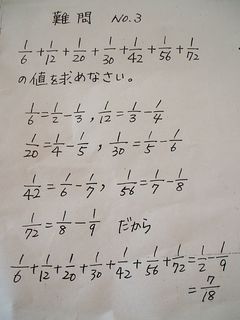 難問 NO.3
1/6+1/12+1/20+1/30+1/42+1/56+1/72
の値を求めなさい。
1/6=1/2-1/3, 1/12=1/3-1/4
1/20=1/4-1/5, 1/30=1/5-1/6
1/42=1/6-1/7, 1/56=1/7-1/8
1/72=1/8-1/9 だから
1/6+1/12+1/20+1/30+1/42+1/56+1/72=1/2-1/9
=7/18